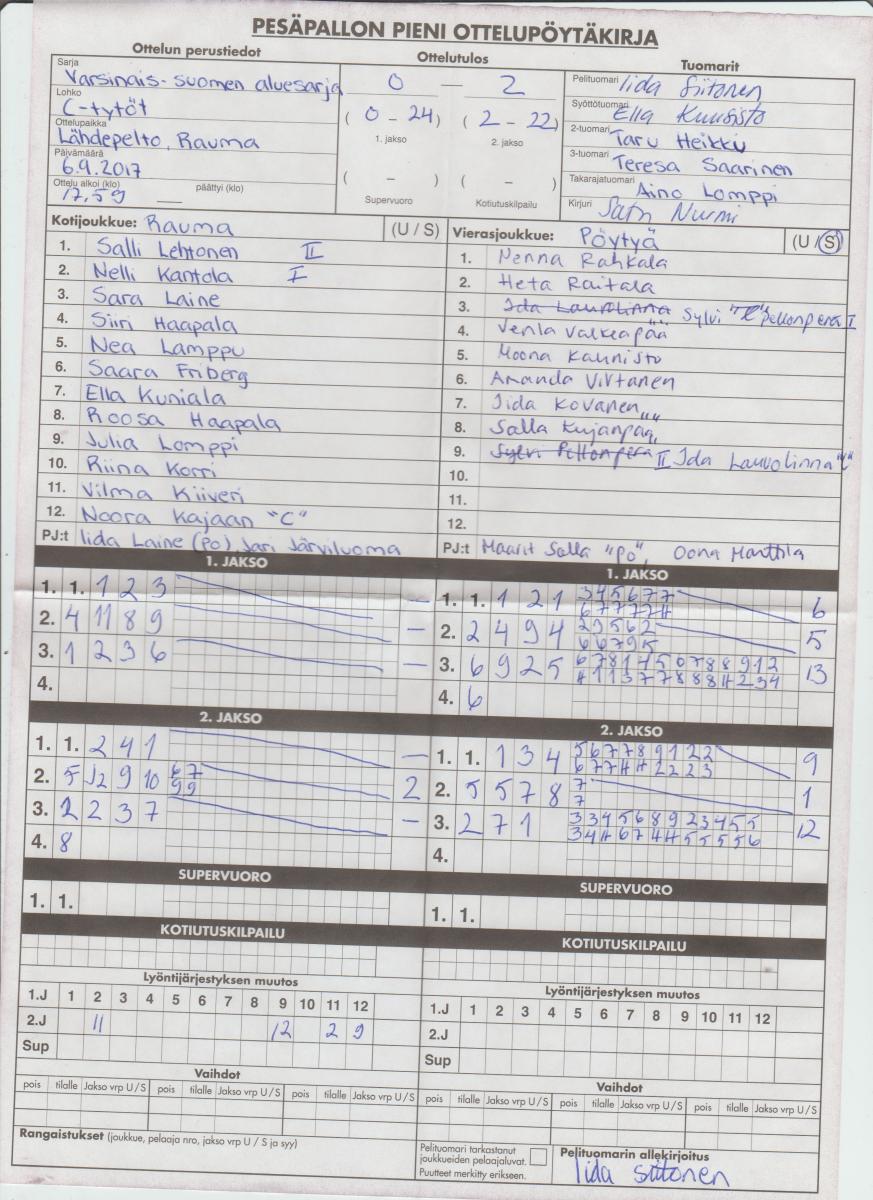 PESÄPALLON PIENI OTTELUPÖYTÄKIRJA
Ottelun perustiedot
Ottelutulos
Tuomarit
Sarja
Varsinais-suomen aluesarja
Lohko
C-tytöt
Ottelupaikka
Lähdepelto, Rauma
Päivämäärä
6.9.2017
Ottelu alkoi (klo) päättyi (klo)
17.59
0 — 2
(0 - 24) (2 - 22)
1. jakso 2. jakso
( - ) ( - )
Supervuoro Kotiutuskilpailu
Pelituomari Iida Siitonen
Syöttötuomari Ella Kuusisto
2-tuomari Taru Heikku
3-tuomari Teresa Saarinen
Takarajatuomari Aino Lomppi
Kirjuri Satu Nurmi
Kotijoukkue: Rauma (U / S)
1. Salli Lehtonen II
2. Nelli Kantola I
3. Sara Laine
4. Siiri Haapala
5. Nea Lamppu
6. Saara Friberg
7. Ella Kuniala
8. Roosa Haapala
9. Julia Lomppi
10. Riina Korri
11. Vilma Kiiveri
12. Noora Kajaan "C"
PJ:t Iida Laine (po) Jari Järviluoma
Vierasjoukkue: Pöytyä (U / S)
1. Henna Rahkala
2. Heta Raitala
3. Ida Lauvolinna Sylvi "C" Pellonperä I
4. Venla Valkeapää
5. Moona Kaunisto
6. Amanda Virtanen
7. Iida Kovanen
8. Salla Kujanpää
9. Sylvi Pellonperä II Ida Lauvolinna "C"
10.
11.
12.
PJ:t Maarit Salla "po", Oona Manttila
1. JAKSO
1. 1. 1 2 3 —
2. 4 11 8 9 —
3. 1 2 3 6 —
4.
2. JAKSO
1. 1. 2 4 1 —
2. 5 12 9 10 6 7 2
9 9
3. 1 2 3 7 —
4. 8
SUPERVUORO
1. 1.
KOTIUTUSKILPAILU
1. JAKSO
1. 1. 1 2 1 3 4 5 6 7 7 6
6 7 7 7 7 H
2. 2 4 9 4 2 9 5 6 2 5
6 6 7 9 5
3. 6 9 2 5 6 7 8 1 4 5 0 7 8 8 9 1 2 13
H 1 1 3 7 7 8 8 8 H 2 3 4
4. 6
2. JAKSO
1. 1. 1 3 4 5 6 7 7 8 9 1 2 2 9
6 7 7 H H 2 2 2 3
2. 5 5 7 8 7 1
7
3. 2 7 1 3 3 4 5 6 8 9 2 3 4 5 5 12
3 4 H 6 7 4 H 5 5 5 5 6
4.
SUPERVUORO
1. 1.
KOTIUTUSKILPAILU
Lyöntijärjestyksen muutos
1.J 1 2 3 4 5 6 7 8 9 10 11 12
2.J 11 12 2 9
Sup
Vaihdot
pois tilalle Jakso vrp U / S pois tilalle Jakso vrp U / S pois tilalle Jakso vrp U / S
Lyöntijärjestyksen muutos
1.J 1 2 3 4 5 6 7 8 9 10 11 12
2.J
Sup
Vaihdot
pois tilalle Jakso vrp U / S pois tilalle Jakso vrp U / S pois tilalle Jakso vrp U / S
Rangaistukset (joukkue, pelaaja nro, jakso vrp U / S ja syy)
Pelituomari tarkastanut
joukkueiden pelaajaluvat.
Puutteet merkitty erikseen.
Pelituomarin allekirjoitus
Iida Siitonen